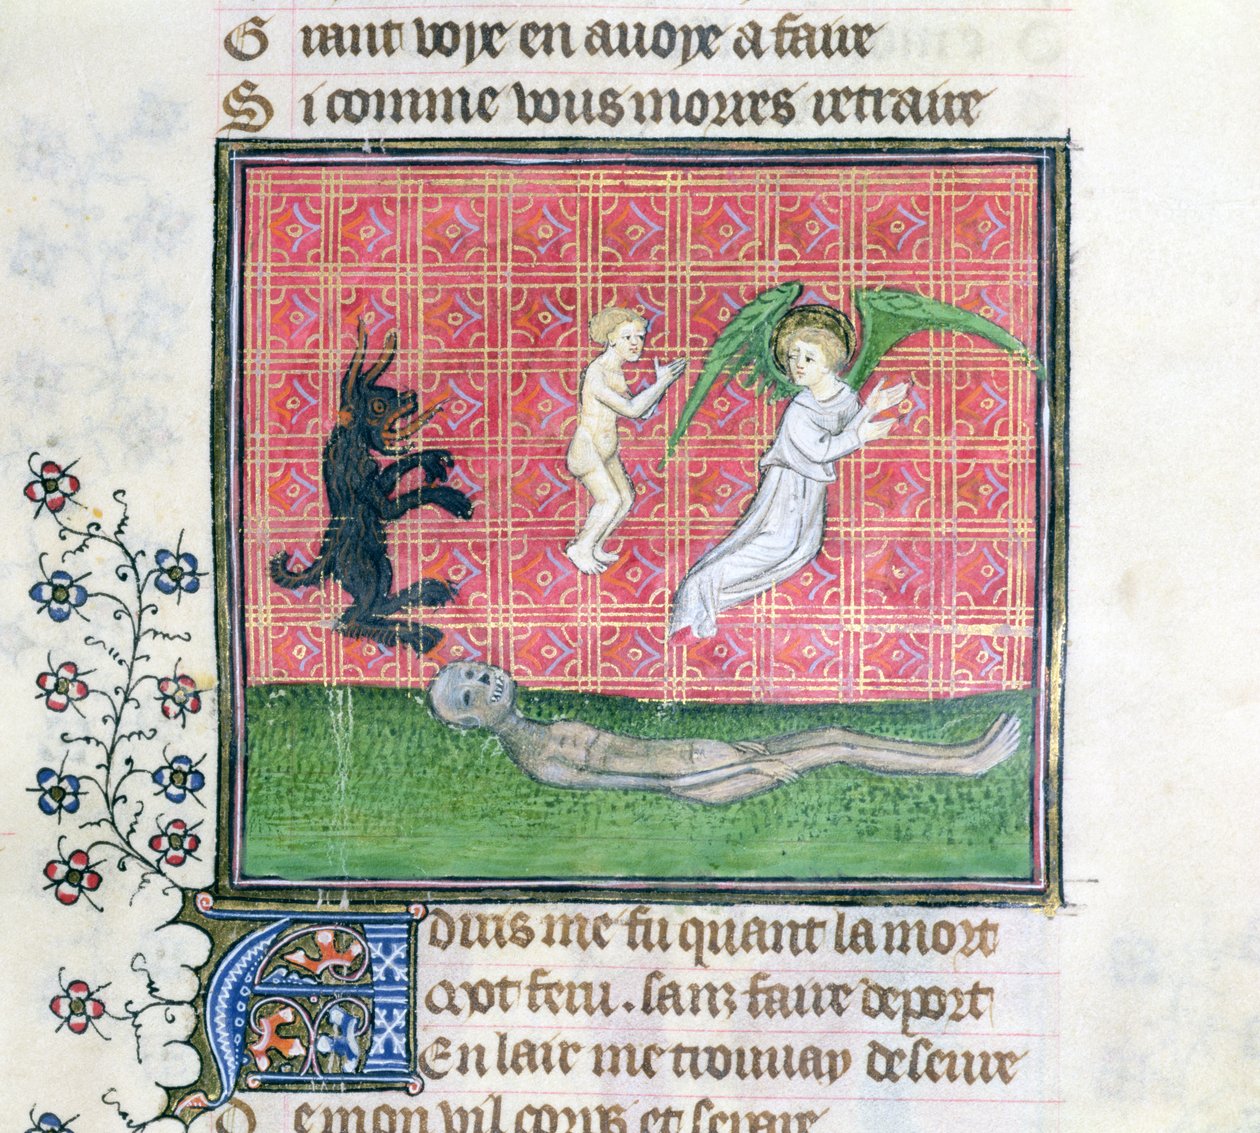 Grant voye en avoye a faire
Si comme vous morres retraire
Aduis me fu quant la mort
Qot feru . sanz faire deport
En lair me trouuay deseure
De mon vil corps et seure